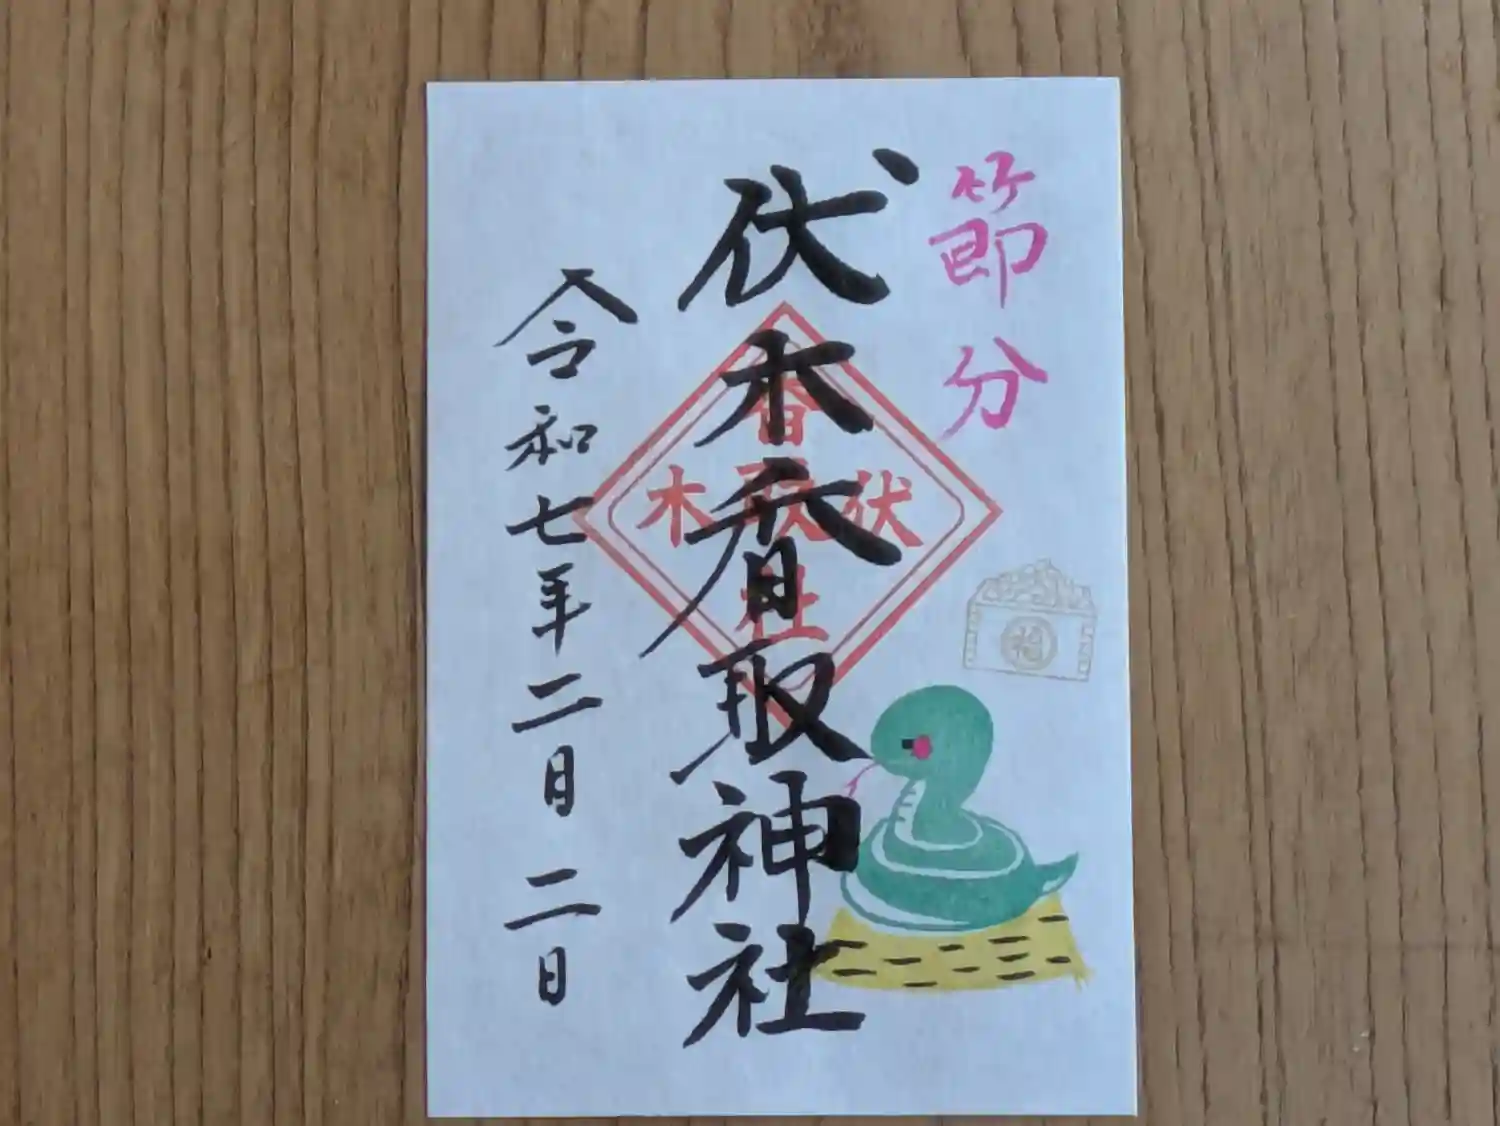 節分
伏木香取神社
令和七年二月二日
香
木取伏
社
福